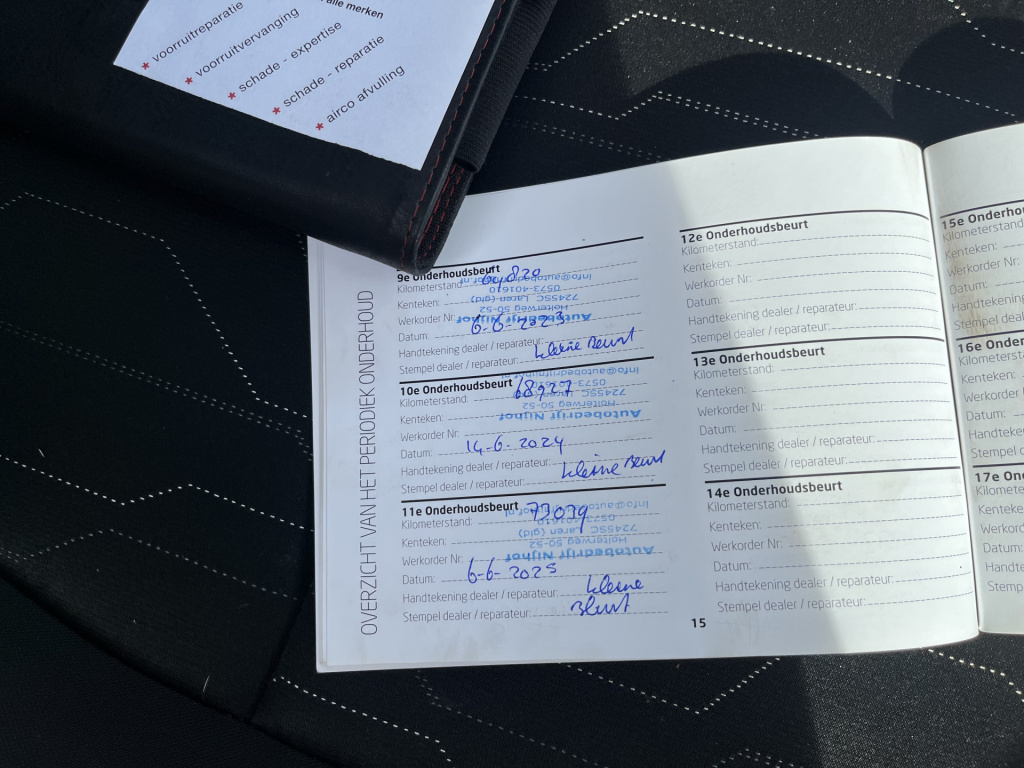 alle merken
★ voorruitreparatie
★ voorruitvervanging
★ schade - expertise
★ schade - reparatie
★ airco afvulling
OVERZICHT VAN HET PERIODIEK ONDERHOUD
9e Onderhoudsbeurt
Kilometerstand:
Kenteken:
Werkorder Nr:
Datum: 6-6-2023
Handtekening dealer / reparateur:
Stempel dealer / reparateur: kleine Beurt
Autobedrijf Nijhof
Holterweg 50-52
7245SC Laren (gld)
0573-401610
10e Onderhoudsbeurt
Kilometerstand: 68927
Kenteken:
Werkorder Nr:
Datum: 14-6-2024
Handtekening dealer / reparateur:
Stempel dealer / reparateur: kleine Beurt
Autobedrijf Nijhof
Holterweg 50-52
7245SC Laren (gld)
11e Onderhoudsbeurt
Kilometerstand: 73079
Kenteken:
Werkorder Nr:
Datum: 6-6-2025
Handtekening dealer / reparateur: kleine
Stempel dealer / reparateur: Beurt
Autobedrijf Nijhof
Holterweg 50-52
7245SC Laren (gld)
0573-401610
12e Onderhoudsbeurt
Kilometerstand:
Kenteken:
Werkorder Nr:
Datum:
Handtekening dealer / reparateur:
Stempel dealer / reparateur:
13e Onderhoudsbeurt
Kilometerstand:
Kenteken:
Werkorder Nr:
Datum:
Handtekening dealer / reparateur:
Stempel dealer / reparateur:
14e Onderhoudsbeurt
Kilometerstand:
Kenteken:
Werkorder Nr:
Datum:
Handtekening dealer / reparateur:
Stempel dealer / reparateur:
15
15e Onderhou
Kilometerstand:
Kenteken:
Werkorder Nr:
Datum:
Handtekening
Stempel deale
16e Onder
Kilometerst
Kenteken:
Werkorder
Datum:
Handteke
Stempel
17e On
Kilomete
Kenteken
Werkord
Datum:
Handte
Stemp